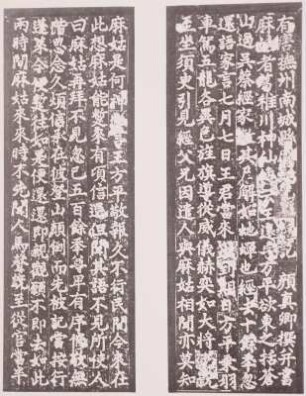 有唐撫州南城縣記顏真卿撰并書
麻姑者葛稚川神仙遠字方平欲東之括蒼
山過吳蔡經家教其尸解如蛇蟬也經去十餘年忽
還語家言七月七日王君當來過到期日方平乘羽
車駕五龍各異色旌旗導從威儀赫弈如大將
至坐須臾引見經父兄因遣人與麻姑相聞亦莫知
麻姑是何神言王方平敬報久不行民間今來在
此想麻姑能暫來有頃信還但聞其語不見所使人
曰麻姑再拜不見忽已五百餘年尊卑有序修敬無
階思念久煩信承在彼登山顛倒而先被記當按行
蓬萊今便暫往如是便還還即親覲願不即去如此
兩時間麻姑來來時不先聞人馬聲既至從官當半